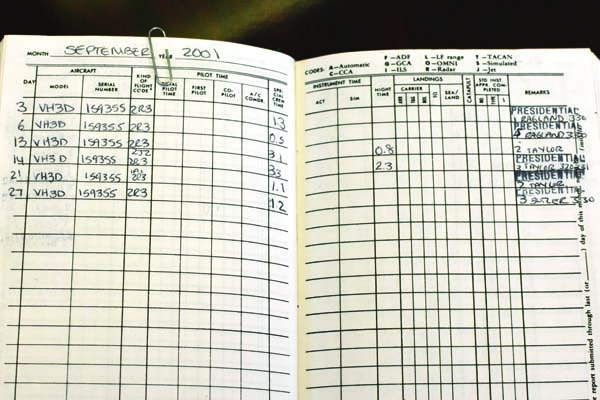 MONTH SEPTEMBER YEAR 2001
AIRCRAFT
PILOT TIME
DAY
MODEL
SERIAL NUMBER
KIND OF FLIGHT CODE
PILOT TIME
FIRST PILOT
CO-PILOT
A/C COMDR.
SPECIAL CREW TIME
3 VH3D 159355 2R3 1.3
6 VH3D 159355 2R3 0.5
13 VH3D 159355 2R3 3.1
14 VH3D 159355 2R3 3.3
21 VH3D 159355 1A1 2R3 1.1
27 VH3D 159355 2R3 1.2
CODES: A—Automatic
C—CCA
F—ADF
G—GCA
I—ILS
L—LF range
O—OMNI
R—Radar
T—TACAN
S—Simulated
J—Jet
INSTRUMENT TIME
ACT
SIM
NIGHT TIME
LANDINGS
CARRIER
ARR
T&G
BOL
FCL
SEA/LAND
CATAPULT
STD INST APPR. COMPLETED
NO
TYPE
REMARKS
PRESIDENTIAL
1 RAGLAND 330
PRESIDENTIAL
RAGLAND
0.8 2 TAYLOR
PRESIDENTIAL
2.3 2 TAYLOR
PRESIDENTIAL
TAYLOR
PRESIDENTIAL
3 3530
day of this month
report submitted through last (or